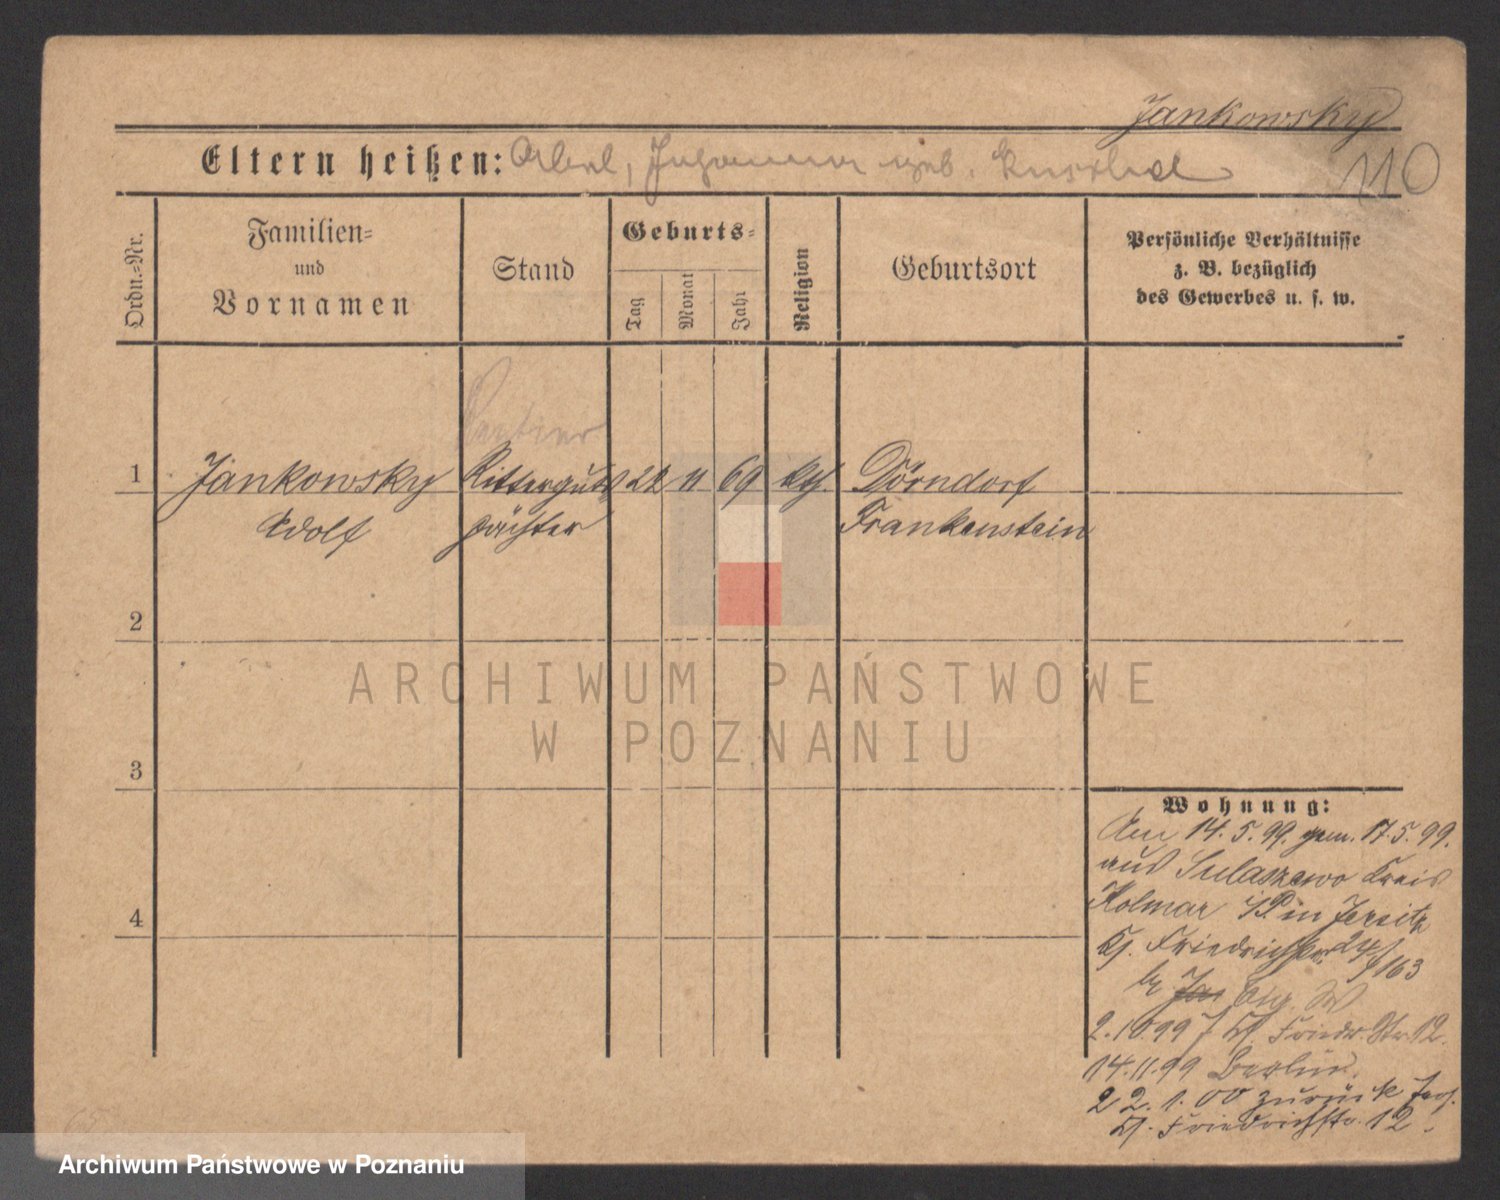 Jankowsky
Eltern heißen: Johanna geb.
110
Ordn.=Nr.
Familien=
und
Vornamen
Stand
Geburts=
Tag
Monat
Jahr
Religion
Geburtsort
Persönliche Verhältnisse
z. B. bezüglich
des Gewerbes u. s. w.
1
Rentier
Jankowsky Ritterguts 22 11 69 kth. Dörndorf
Adolf pächter Frankenstein
2
3
4
Wohnung:
Am 14.5.99. gem. 17.5.99.
aus Sulaszewo Kreis
Kolmar i/P in Jersitz
Kl. Friedrichstr. 24/
163
2.10.99 Kl. Friedr. Str. 12.
14.11.99 Berlin.
22.1.00 zurück Jers.
Kl. Friedrichstr. 12.
ARCHIWUM PAŃSTWOWE
W POZNANIU
Archiwum Państwowe w Poznaniu